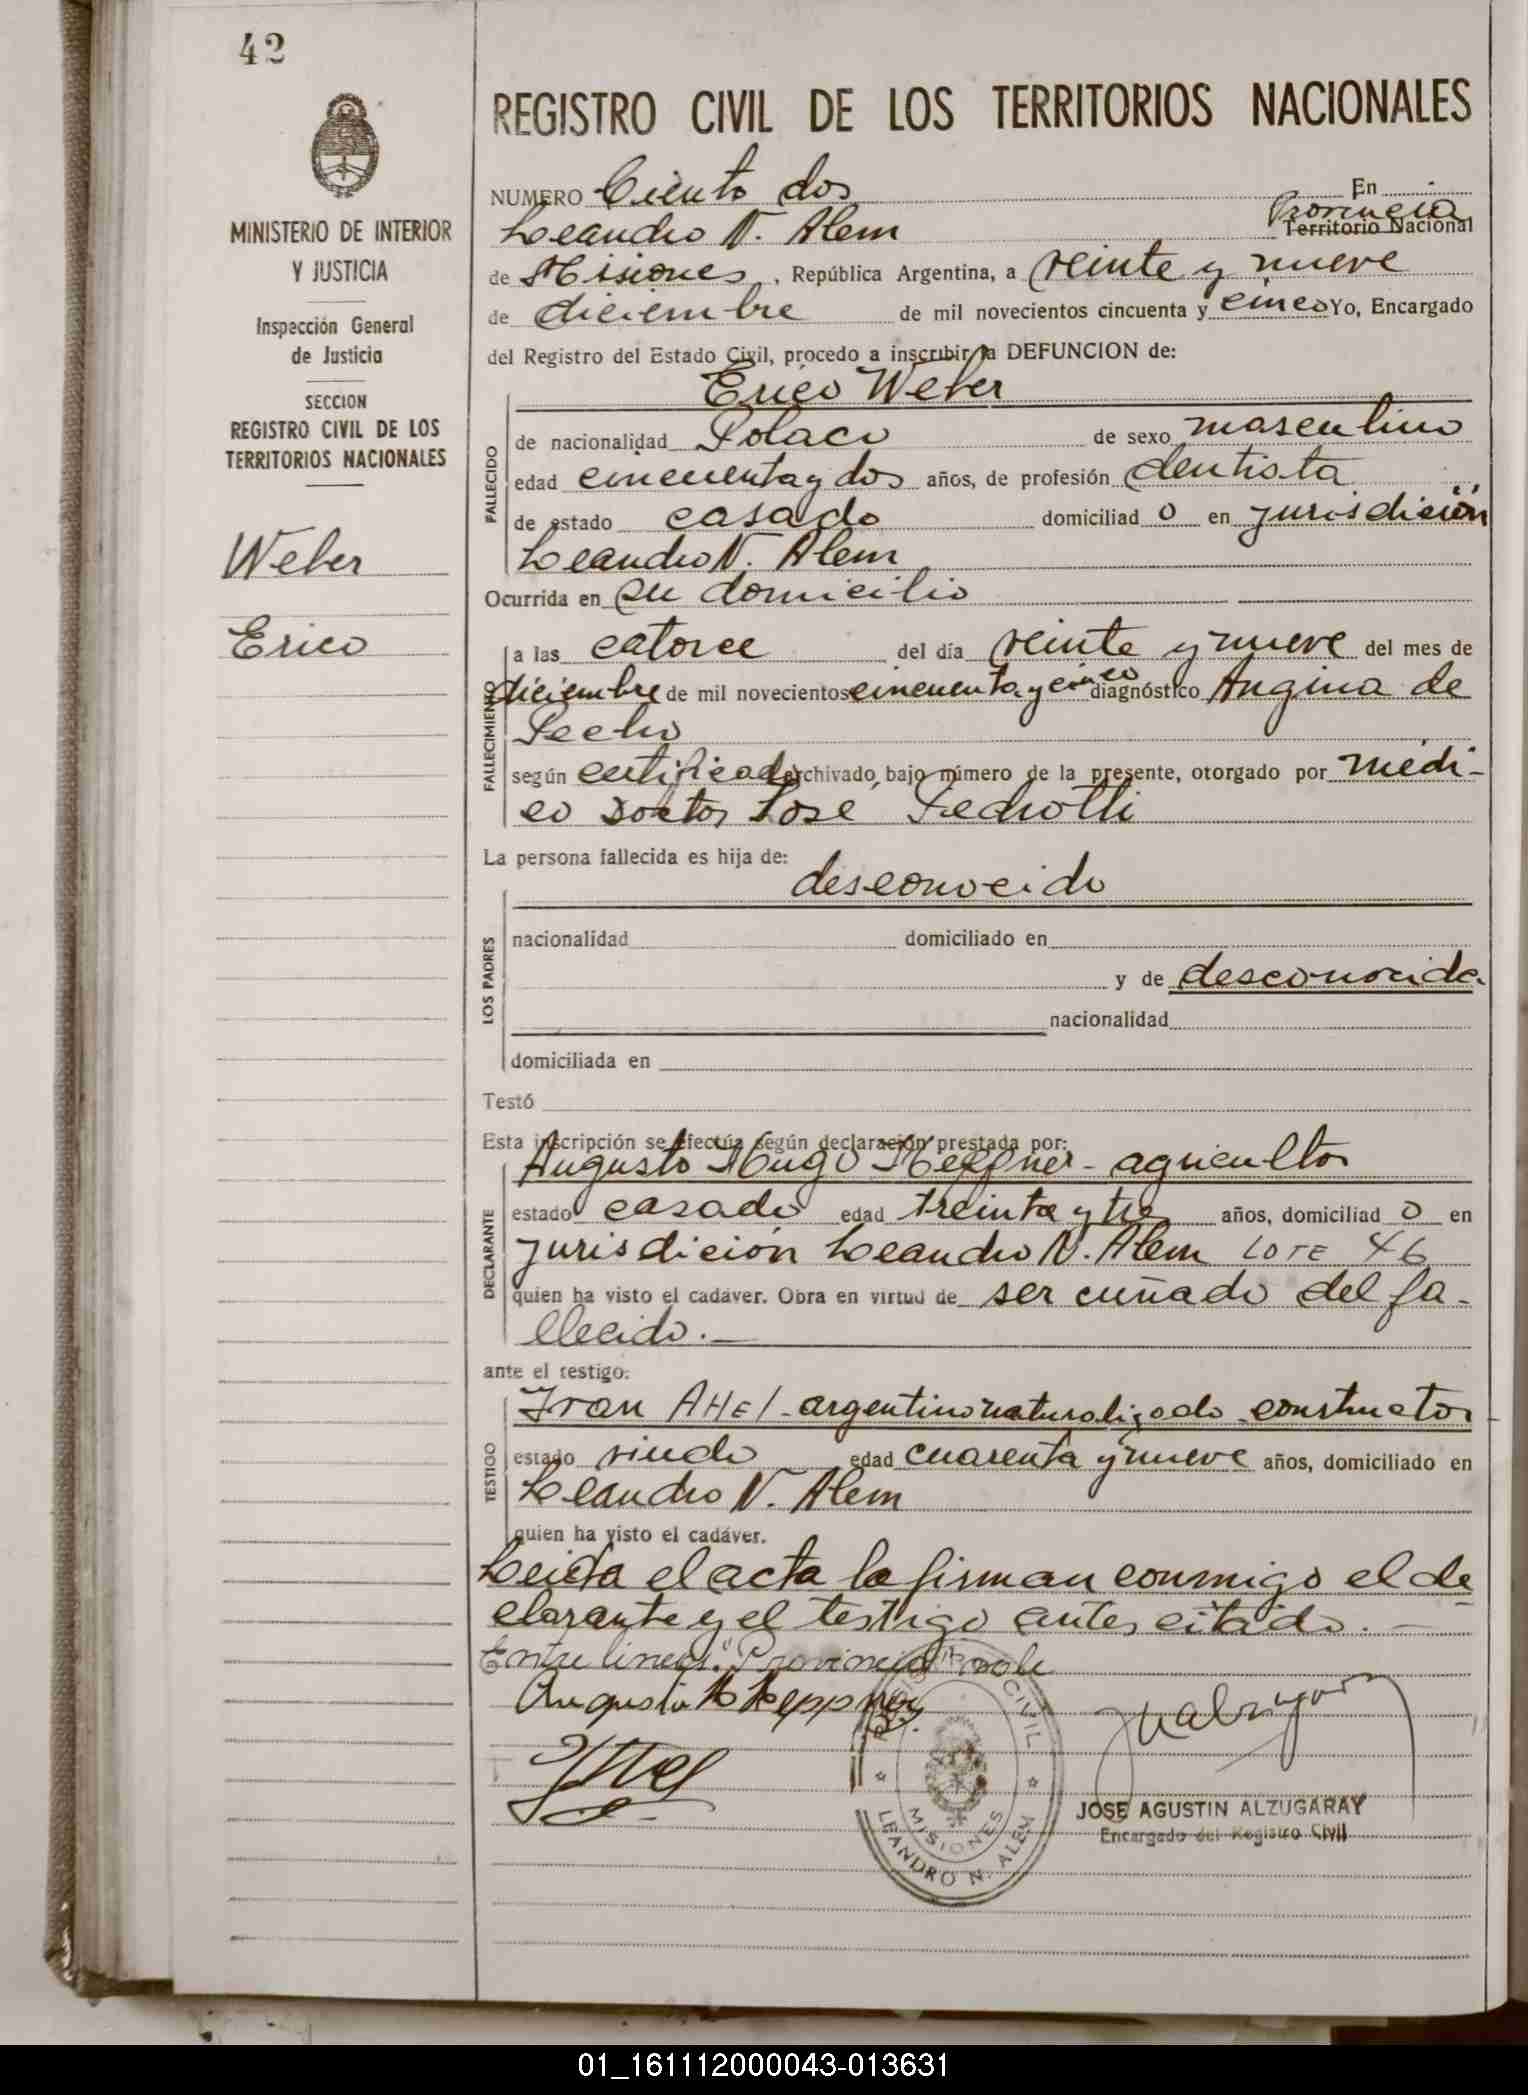 42
MINISTERIO DE INTERIOR
Y JUSTICIA
Inspección General
de Justicia
SECCION
REGISTRO CIVIL DE LOS
TERRITORIOS NACIONALES
Weber
Erico
REGISTRO CIVIL DE LOS TERRITORIOS NACIONALES
NUMERO Ciento dos En
Provincia
Leandro N. Alem Territorio Nacional
de Misiones, República Argentina, a veinte y nueve
de diciembre de mil novecientos cincuenta y cinco Yo, Encargado
del Registro del Estado Civil, procedo a inscribir la DEFUNCION de:
Erico Weber
FALLECIDO
de nacionalidad Polaco de sexo masculino
edad cincuenta y dos años, de profesión dentista
de estado casado domiciliad o en jurisdición
Leandro N. Alem
Ocurrida en su domicilio
FALLECIMIENTO
a las catorce del día veinte y nueve del mes de
diciembre de mil novecientos cincuenta y cinco diagnóstico Angina de
Pecho
según certificado archivado, bajo número de la presente, otorgado por médi-
co Doctor José Pedrotti
La persona fallecida es hija de:
desconocido
LOS PADRES
nacionalidad domiciliado en
y de desconocida
nacionalidad
domiciliada en
Testó
Esta inscripción se efectúa según declaración prestada por:
DECLARANTE
Augusto Hugo Heppner - agricultor
estado casado edad treinta y tres años, domiciliad o en
jurisdición Leandro N. Alem LOTE 46
quien ha visto el cadáver. Obra en virtud de ser cuñado del fa-
llecido.-
ante el testigo:
TESTIGO
Ivan AHEl - argentino naturalizado constructor
estado viudo edad cuarenta y nueve años, domiciliado en
Leandro N. Alem
quien ha visto el cadáver.
Leida el acta la firman conmigo el de
clarante y el testigo antes citado.-
Entre lineas: "Provincia" vale
Augusto H Heppner
REGISTRO CIVIL
MISIONES
LEANDRO N. ALEM
JOSE AGUSTIN ALZUGARAY
Encargado del Registro Civil
01_161112000043-013631